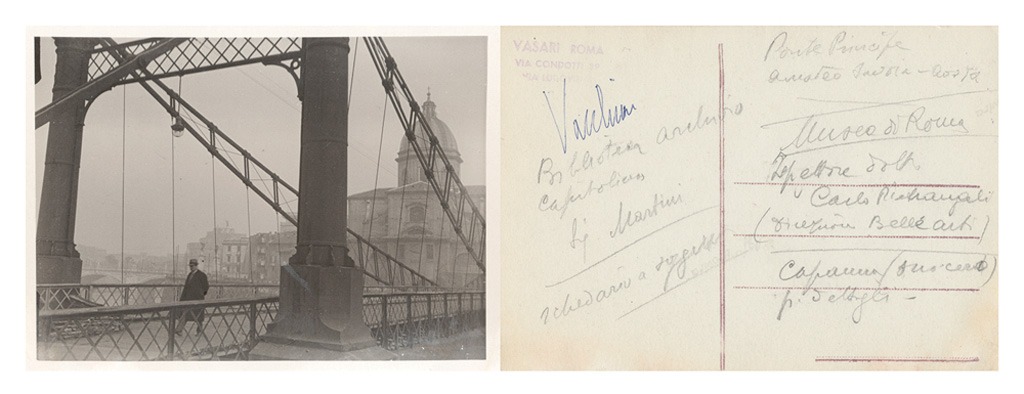 VASARI ROMA
VIA CONDOTTI
Biblioteca archivio
Capitolino
Sig Martini
schedario a soggetto
Ponte Principe
Amedeo Savoia-Aosta
Museo di Roma
Ispettore dott.
Carlo Pietrangeli
(Direzione Belle arti)
p.